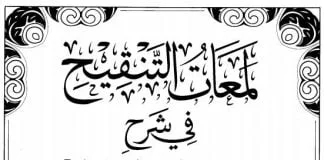 لَمَعَاتُ التَّنْقِيحِ
فِي شَرْحِ